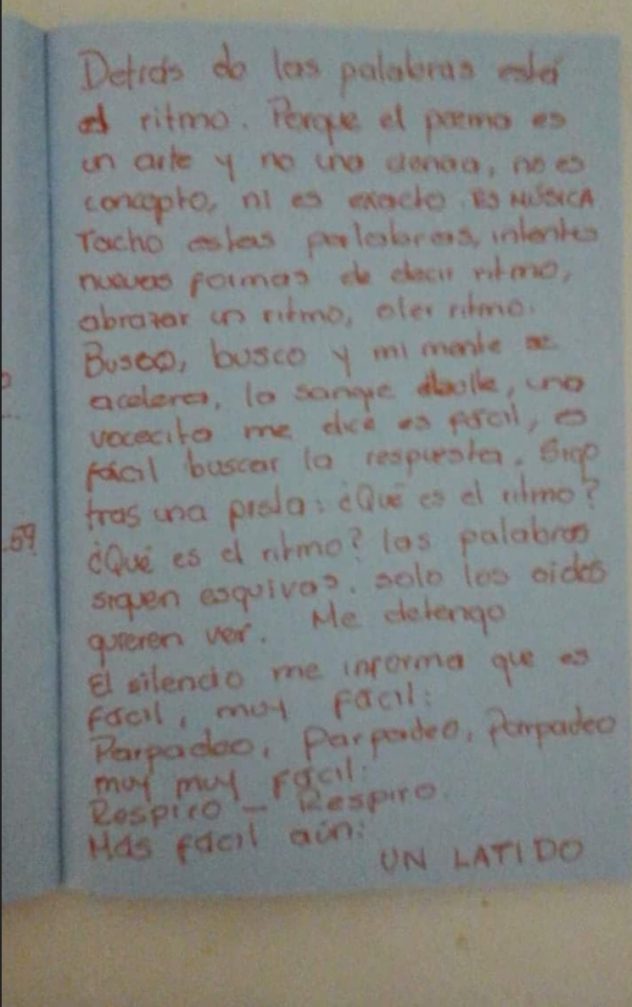 Detrás de las palabras está
el ritmo. Porque el poema es
un arte y no una ciencia, no es
concepto, ni es exacto. ES MÚSICA
Tacho estas palabras, intentes
nuevas formas de decir ritmo,
abrazar un ritmo, oler ritmo.
Busco, busco y mi mente se
acelera, la sangre bulle, una
vocecita me dice es fácil, es
fácil buscar la respuesta. Sigo
tras una pista: ¿Qué es el ritmo?
.59
¿Qué es el ritmo? las palabras
siguen esquivas. solo los oidos
quieren ver. Me detengo
El silencio me informa que es
fácil, muy fácil:
Parpadeo, Parpadeo, Parpadeo
muy muy Fácil:
Respiro - Respiro.
Más fácil aún:
UN LATIDO